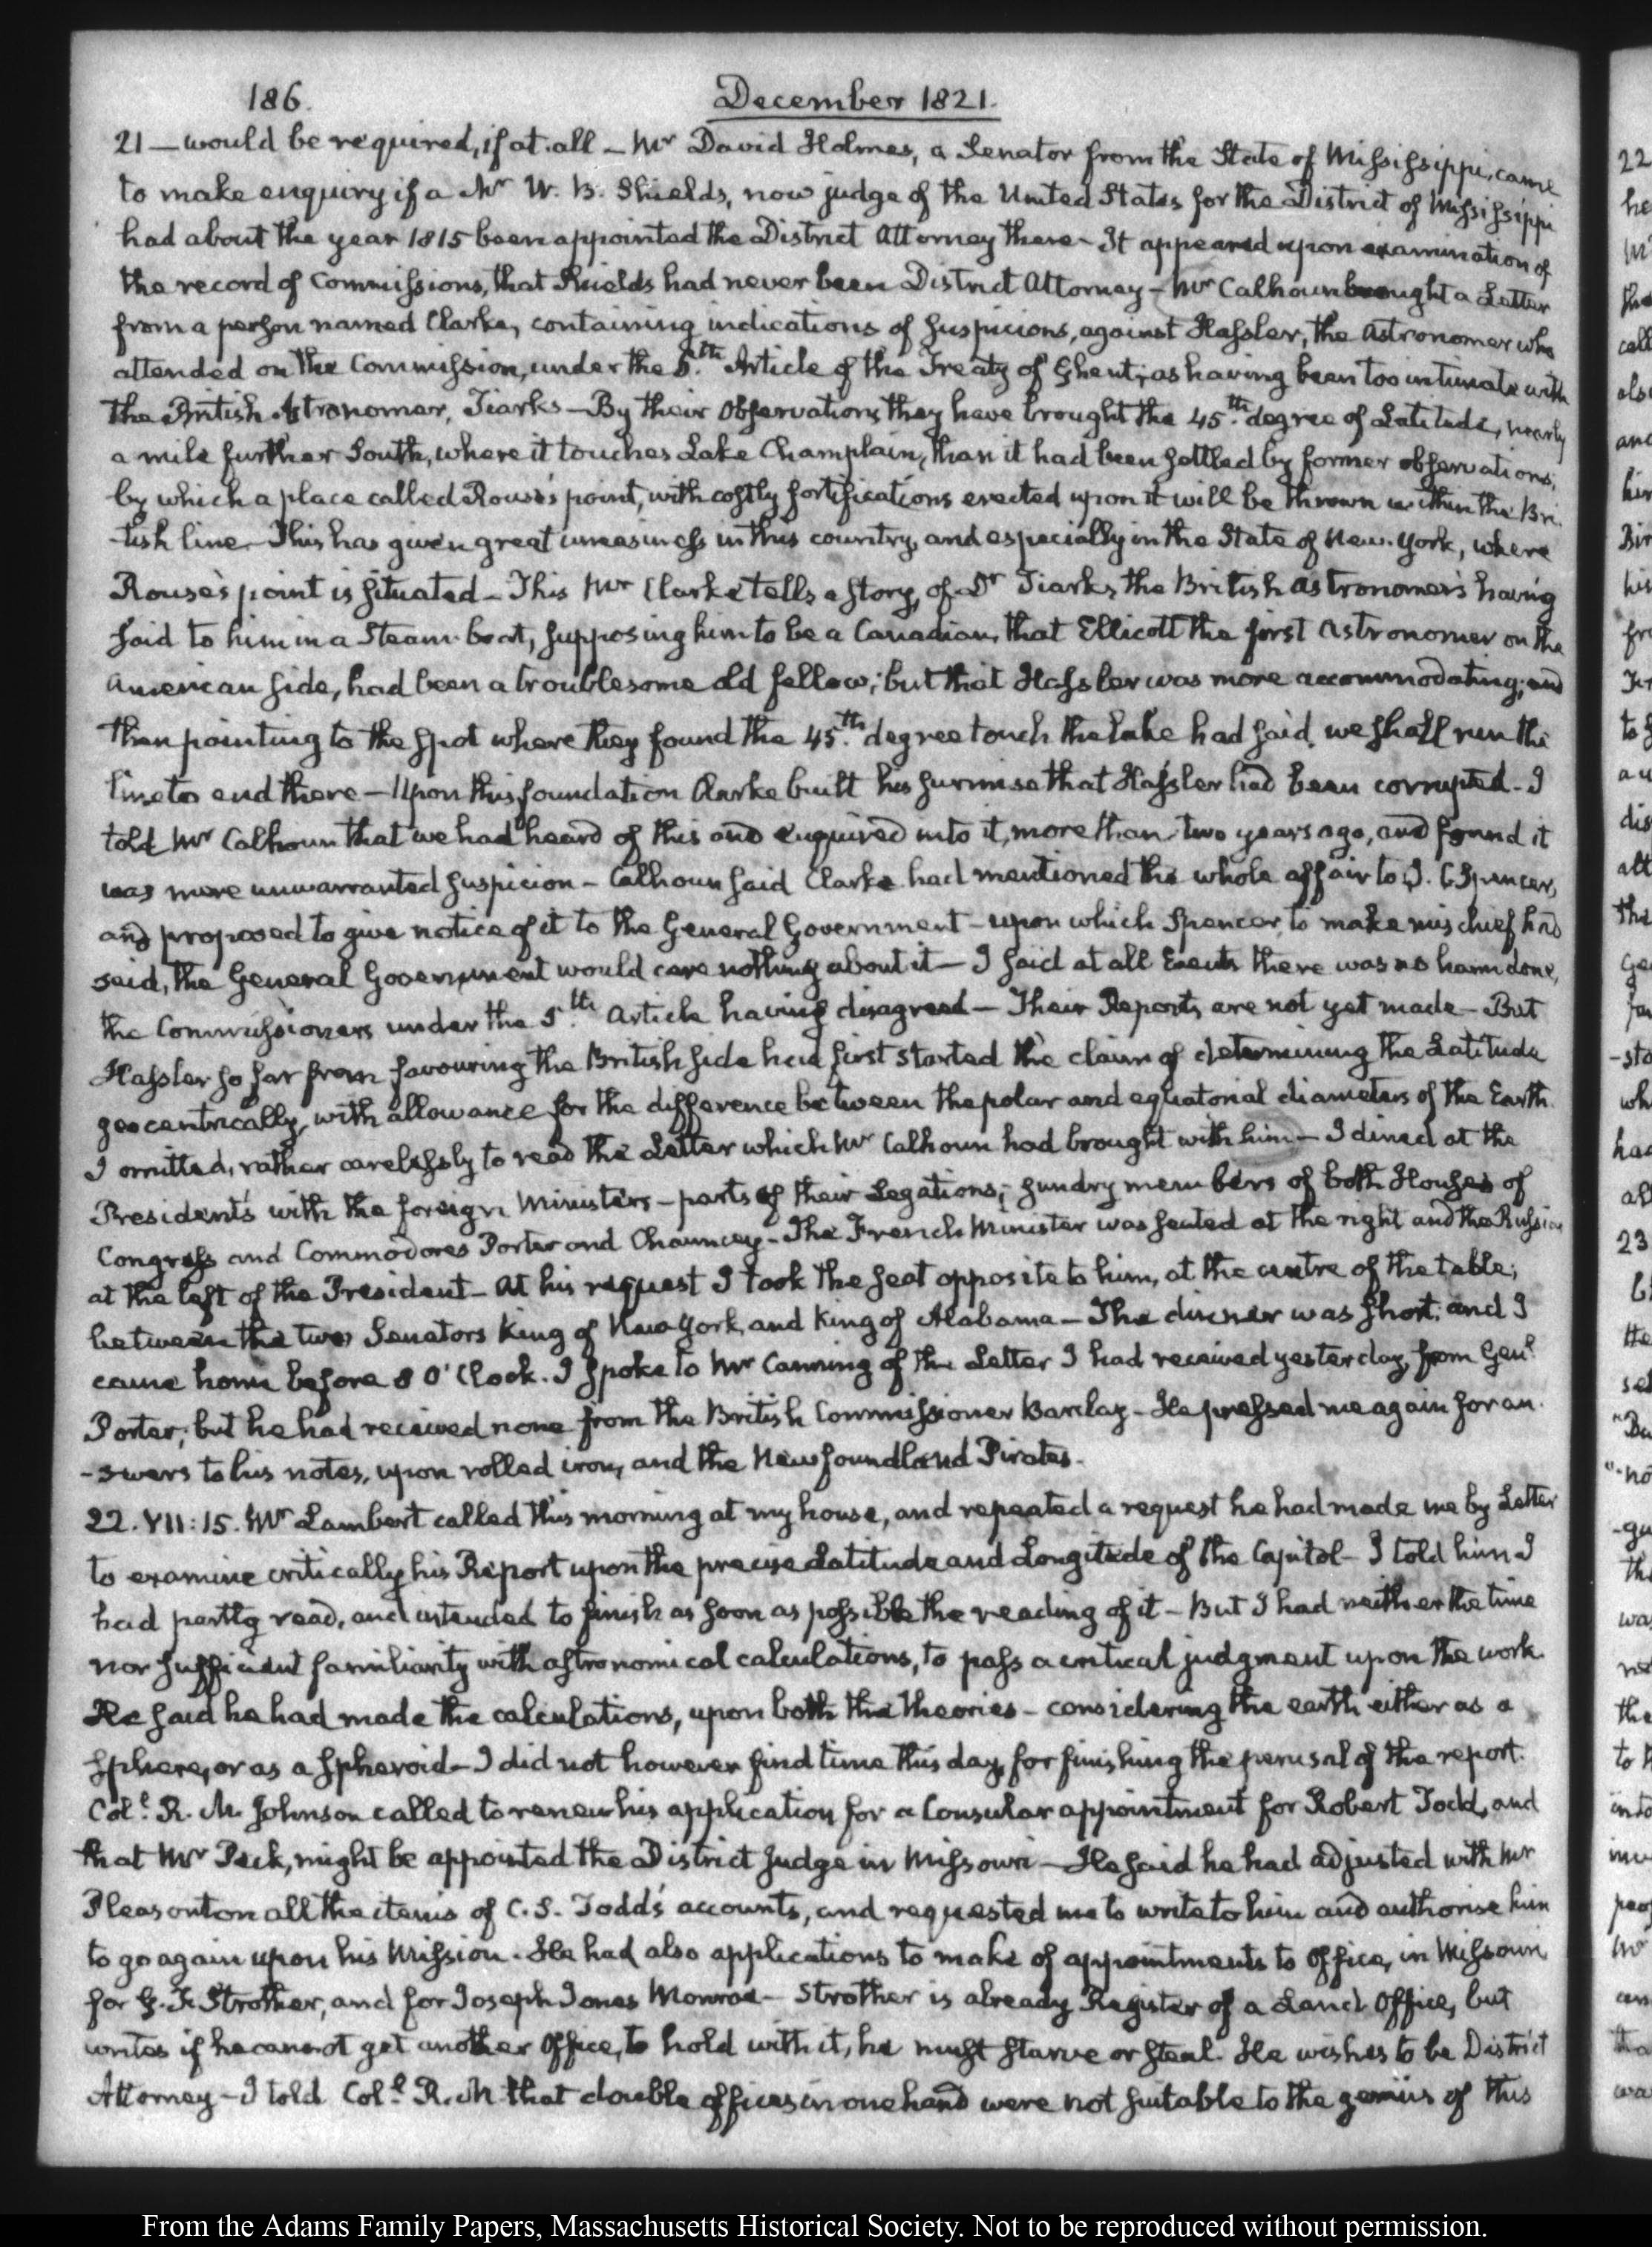 186.
December 1821.
21 — would be required, if at all — Mr David Holmes, a Senator from the State of Mississippi, came
to make enquiry if a Mr W. B. Shields, now judge of the United States for the District of Mississippi
had about the year 1815 been appointed the District Attorney there — It appeared upon examination of
the record of Commissions, that Shields had never been District Attorney — Mr Calhoun brought a Letter
from a person named Clarke, containing indications of suspicions, against Hassler, the Astronomer who
attended on the Commission, under the 5.th Article of the Treaty of Ghent; as having been too intimate with
the British Astronomer, Tiarks — By their Observations they have brought the 45.th degree of Latitude, nearly
a mile further South, where it touches Lake Champlain, than it had been settled by former observations;
by which a place called Rouse's point, with costly fortifications erected upon it will be thrown within the Bri-
-tish line — This has given great uneasiness in this country, and especially in the State of New-York, where
Rouse's point is situated — This Mr Clarke tells a story, of Dr Tiarks, the British astronomer's having
said to him in a Steam-boat, supposing him to be a Canadian, that Ellicott the first Astronomer on the
American side, had been a troublesome old fellow; but that Hassler was more accommodating; and
then pointing to the spot where they found the 45.th degree touch the lake had said, we shall run the
line to end there — Upon this foundation Clarke built his surmise that Hassler had been corrupted — I
told Mr Calhoun that we had heard of this and enquired into it, more than two years ago, and found it
was mere unwarranted suspicion — Calhoun said Clarke had mentioned the whole affair to J. C. Spencer,
and proposed to give notice of it to the General Government — upon which Spencer, to make mischief had
said, the General Government would care nothing about it — I said at all Events there was no harm done,
the Commissioners under the 5.th Article having disagreed — Their Reports are not yet made — But
Hassler so far from favouring the British side had first started the claim of determining the Latitude
geocentrically, with allowance for the difference between the polar and equatorial diameters of the Earth.
I omitted, rather carelessly to read the Letter which Mr Calhoun had brought with him — I dined at the
President's with the foreign Ministers — parts of their Legations; sundry members of both Houses of
Congress and Commodores Porter and Chauncey — The French Minister was seated at the right and the Russian
at the left of the President — At his request I took the seat opposite to him, at the centre of the table;
between the two Senators King of New York, and King of Alabama — The dinner was short; and I
came home before 8 O'Clock. I spoke to Mr Canning of the Letter I had received yesterday, from Genl
Porter; but he had received none from the British Commissioner Barclay — He pressed me again for an-
-swers to his notes, upon rolled iron, and the Newfoundland Pirates.
22. VII:15. Mr Lambert called this morning at my house, and repeated a request he had made me by Letter
to examine critically his Report upon the precise Latitude and Longitude of the Capitol — I told him I
had partly read, and intended to finish as soon as possible the reading of it — But I had neither the time
nor sufficient familiarity with astronomical calculations, to pass a critical judgment upon the work.
He said he had made the calculations, upon both the theories — considering the earth either as a
sphere, or as a spheroid — I did not however find time this day, for finishing the perusal of the report.
Coll R. M. Johnson called to renew his application for a Consular appointment for Robert Todd, and
that Mr Peck, might be appointed the District Judge in Missouri — He said he had adjusted with Mr
Pleasonton all the items of C. S. Todd's accounts, and requested me to write to him and authorise him
to go again upon his Mission. He had also applications to make of appointments to Office, in Missouri
for G. F. Strother, and for Joseph Jones Monroe — Strother is already Register of a Land Office, but
writes if he cannot get another Office, to hold with it, he must starve or steal. He wishes to be District
Attorney — I told Coll R. M that double offices in one hand were not suitable to the genius of this
From the Adams Family Papers, Massachusetts Historical Society. Not to be reproduced without permission.